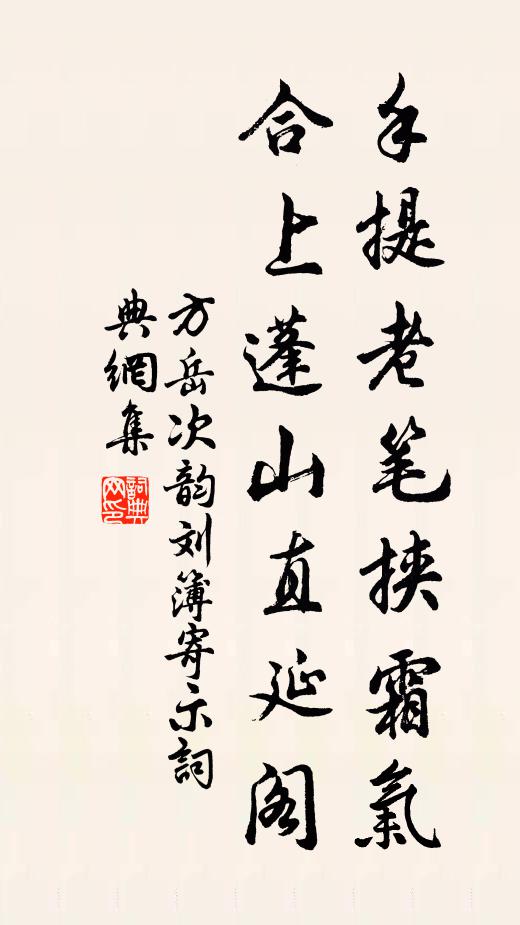 手提老笔挟霜氣
合上蓬山直延阁
方岳次韵刘簿寄示詞
典網集
詞典
网印